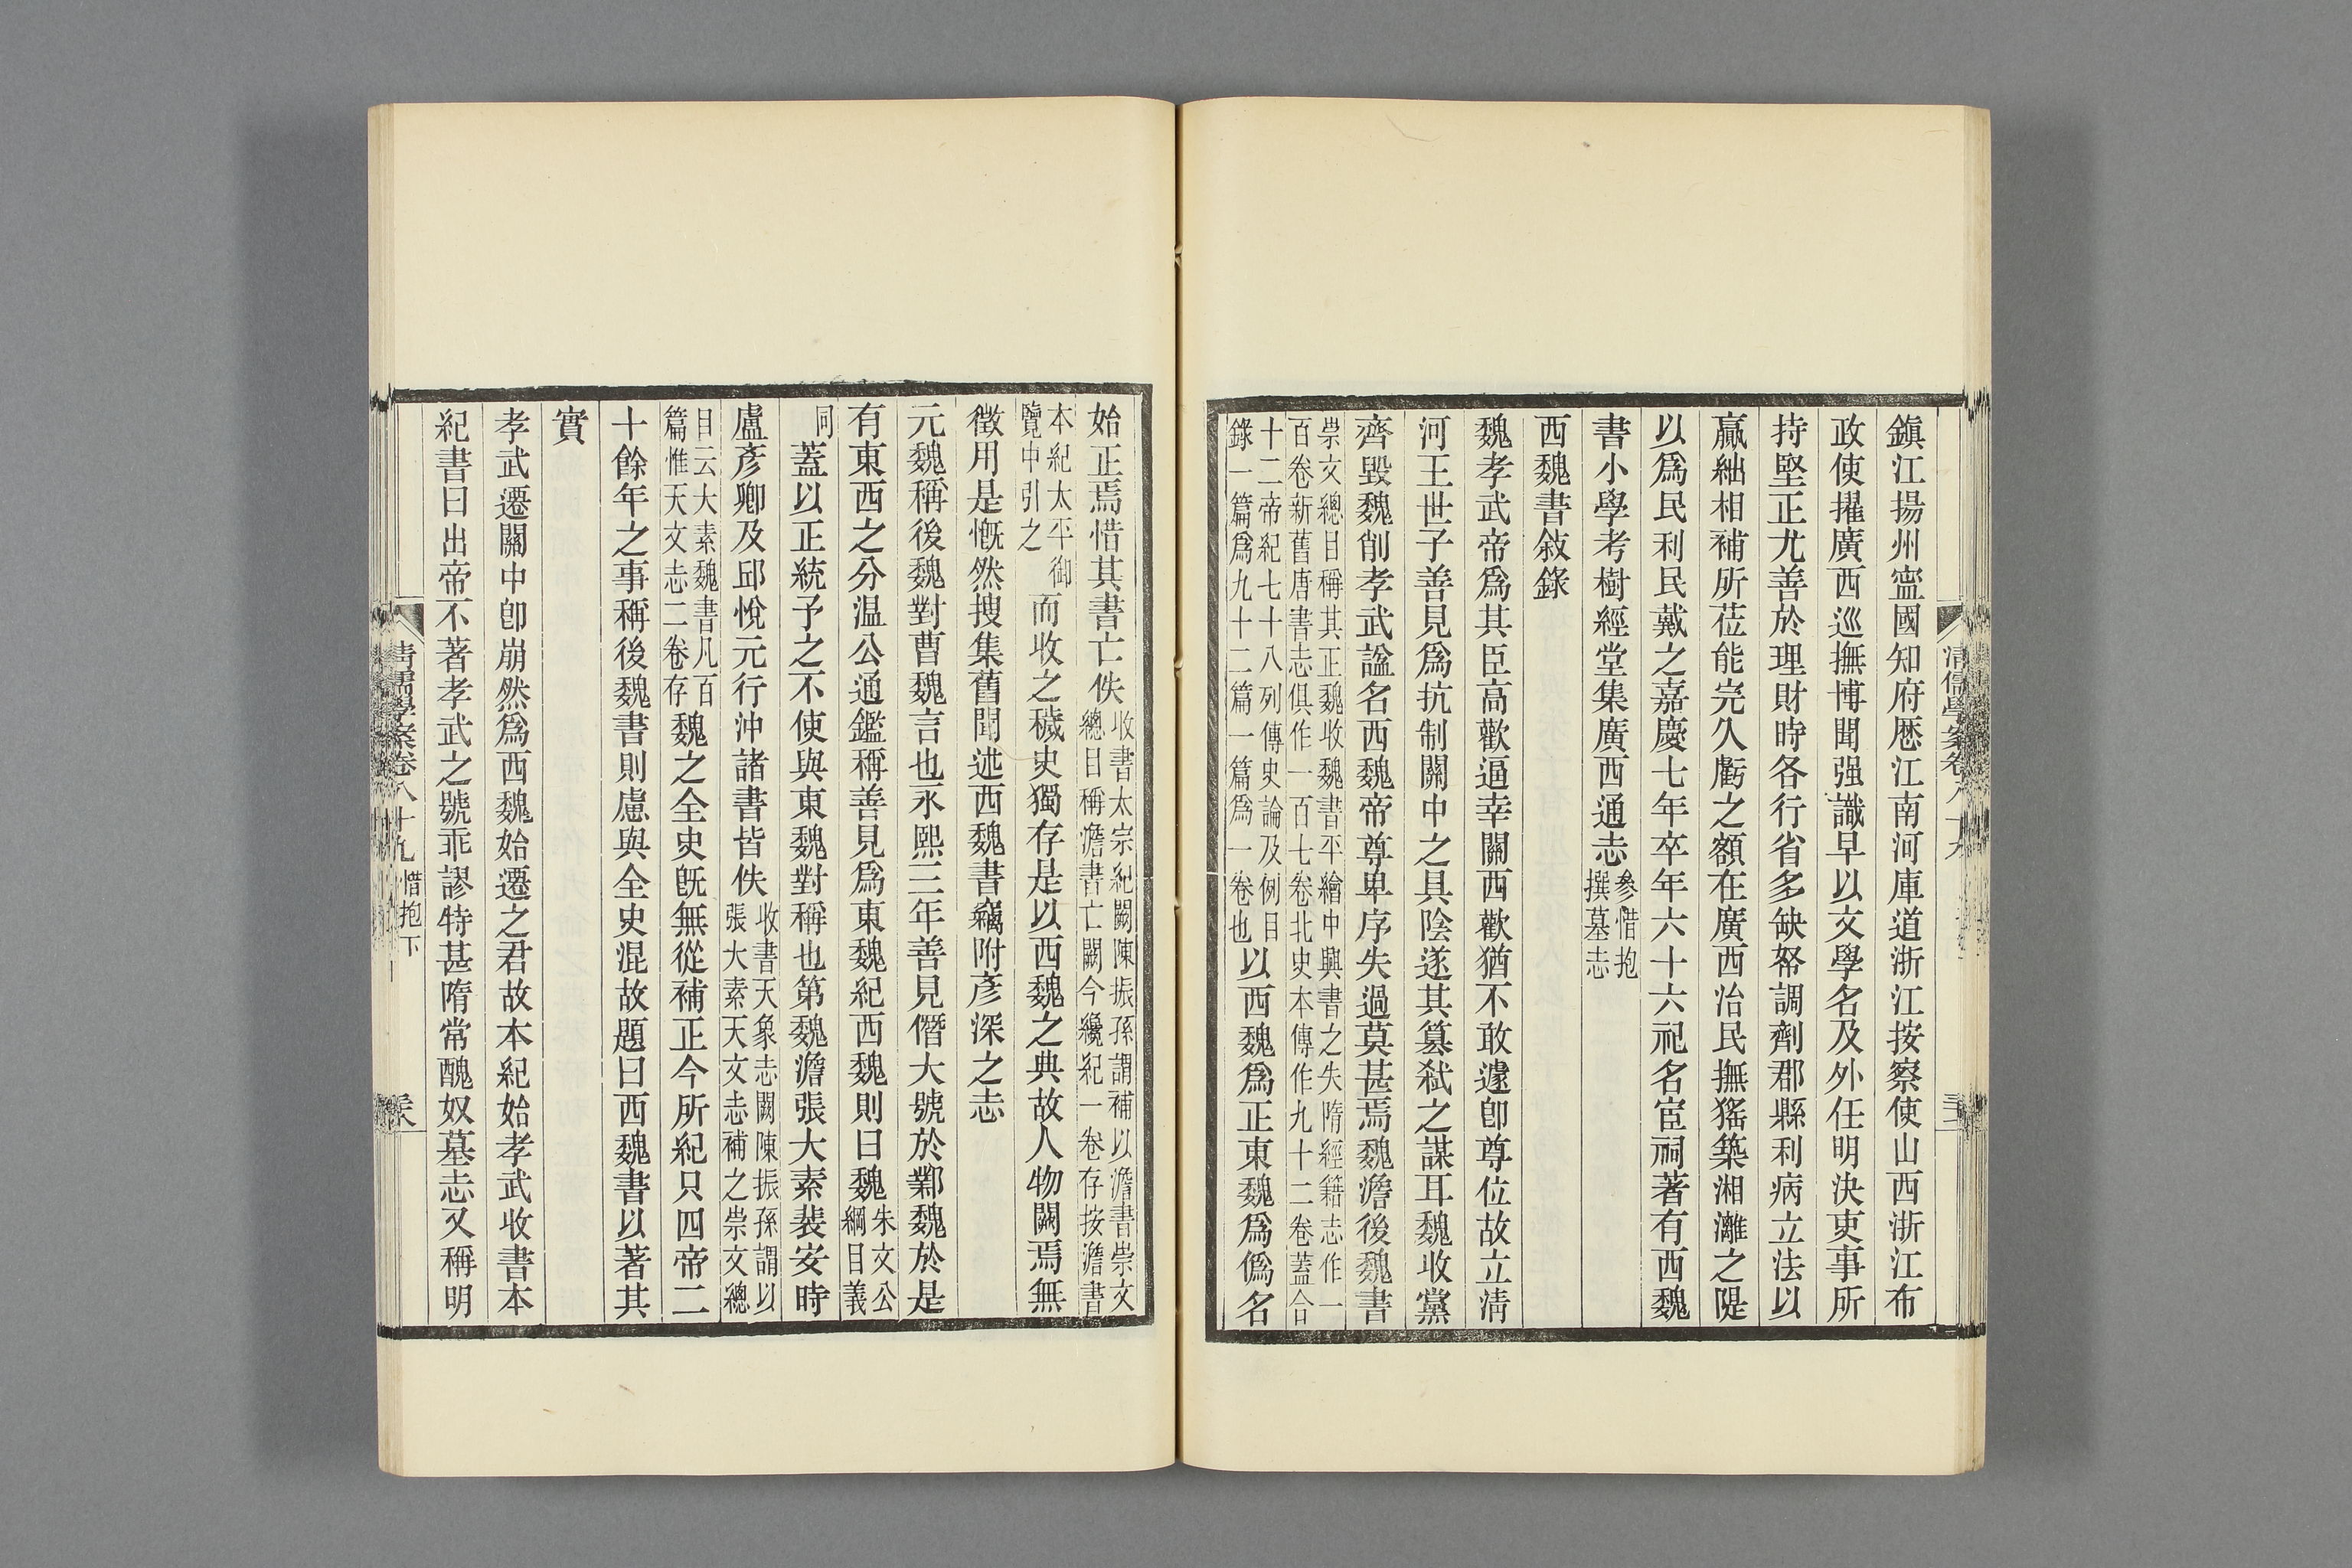 鎭江揚州寍國知府歷江南河庫道浙江按察使山西浙江布
政使擢廣西巡撫博聞强識早以文學名及外任明決吏事所
持堅正尤善於理財時各行省多缺帑調劑郡縣利病立法以
贏絀相補所莅能完久虧之額在廣西治民撫猺築湘灕之隄
以爲民利民戴之嘉慶七年卒年六十六祀名宦祠著有西魏
書小學考樹經堂集廣西通志參惜抱
撰墓志
西魏書敍錄
魏孝武帝爲其臣高歡逼幸關西歡猶不敢遽卽尊位故立淸
河王世子善見爲抗制關中之具陰遂其篡弑之謀耳魏收黨
齊毀魏削孝武諡名西魏帝尊卑序失過莫甚焉魏澹後魏書
崇文總目稱其正魏收魏書平繪中興書之失隋經籍志作一
百卷新舊唐書志俱作一百七卷北史本傳作九十二卷蓋合
十二帝紀七十八列傳史論及例目
錄一篇爲九十二篇一篇爲一卷也以西魏爲正東魏爲僞名
始正焉惜其書亡佚收書太宗紀闕陳振孫謂補以澹書崇文
總目稱澹書亡闕今纔紀一卷存按澹書
本紀太平御
覽中引之而收之穢史獨存是以西魏之典故人物闕焉無
徵用是慨然搜集舊聞述西魏書竊附彥深之志
元魏稱後魏對曹魏言也永熙三年善見僭大號於鄴魏於是
有東西之分温公通鑑稱善見爲東魏紀西魏則曰魏朱文公
綱目義
同蓋以正統予之不使與東魏對稱也第魏澹張大素裴安時
盧彥卿及邱悅元行沖諸書皆佚收書天象志闕陳振孫謂以
張大素天文志補之崇文總
目云大素魏書凡百
篇惟天文志二卷存魏之全史旣無從補正今所紀只四帝二
十餘年之事稱後魏書則慮與全史混故題曰西魏書以著其
實
孝武遷關中卽崩然爲西魏始遷之君故本紀始孝武收書本
紀書曰出帝不著孝武之號乖謬特甚隋常醜奴墓志又稱明
淸儒學案卷八十九 惜抱下